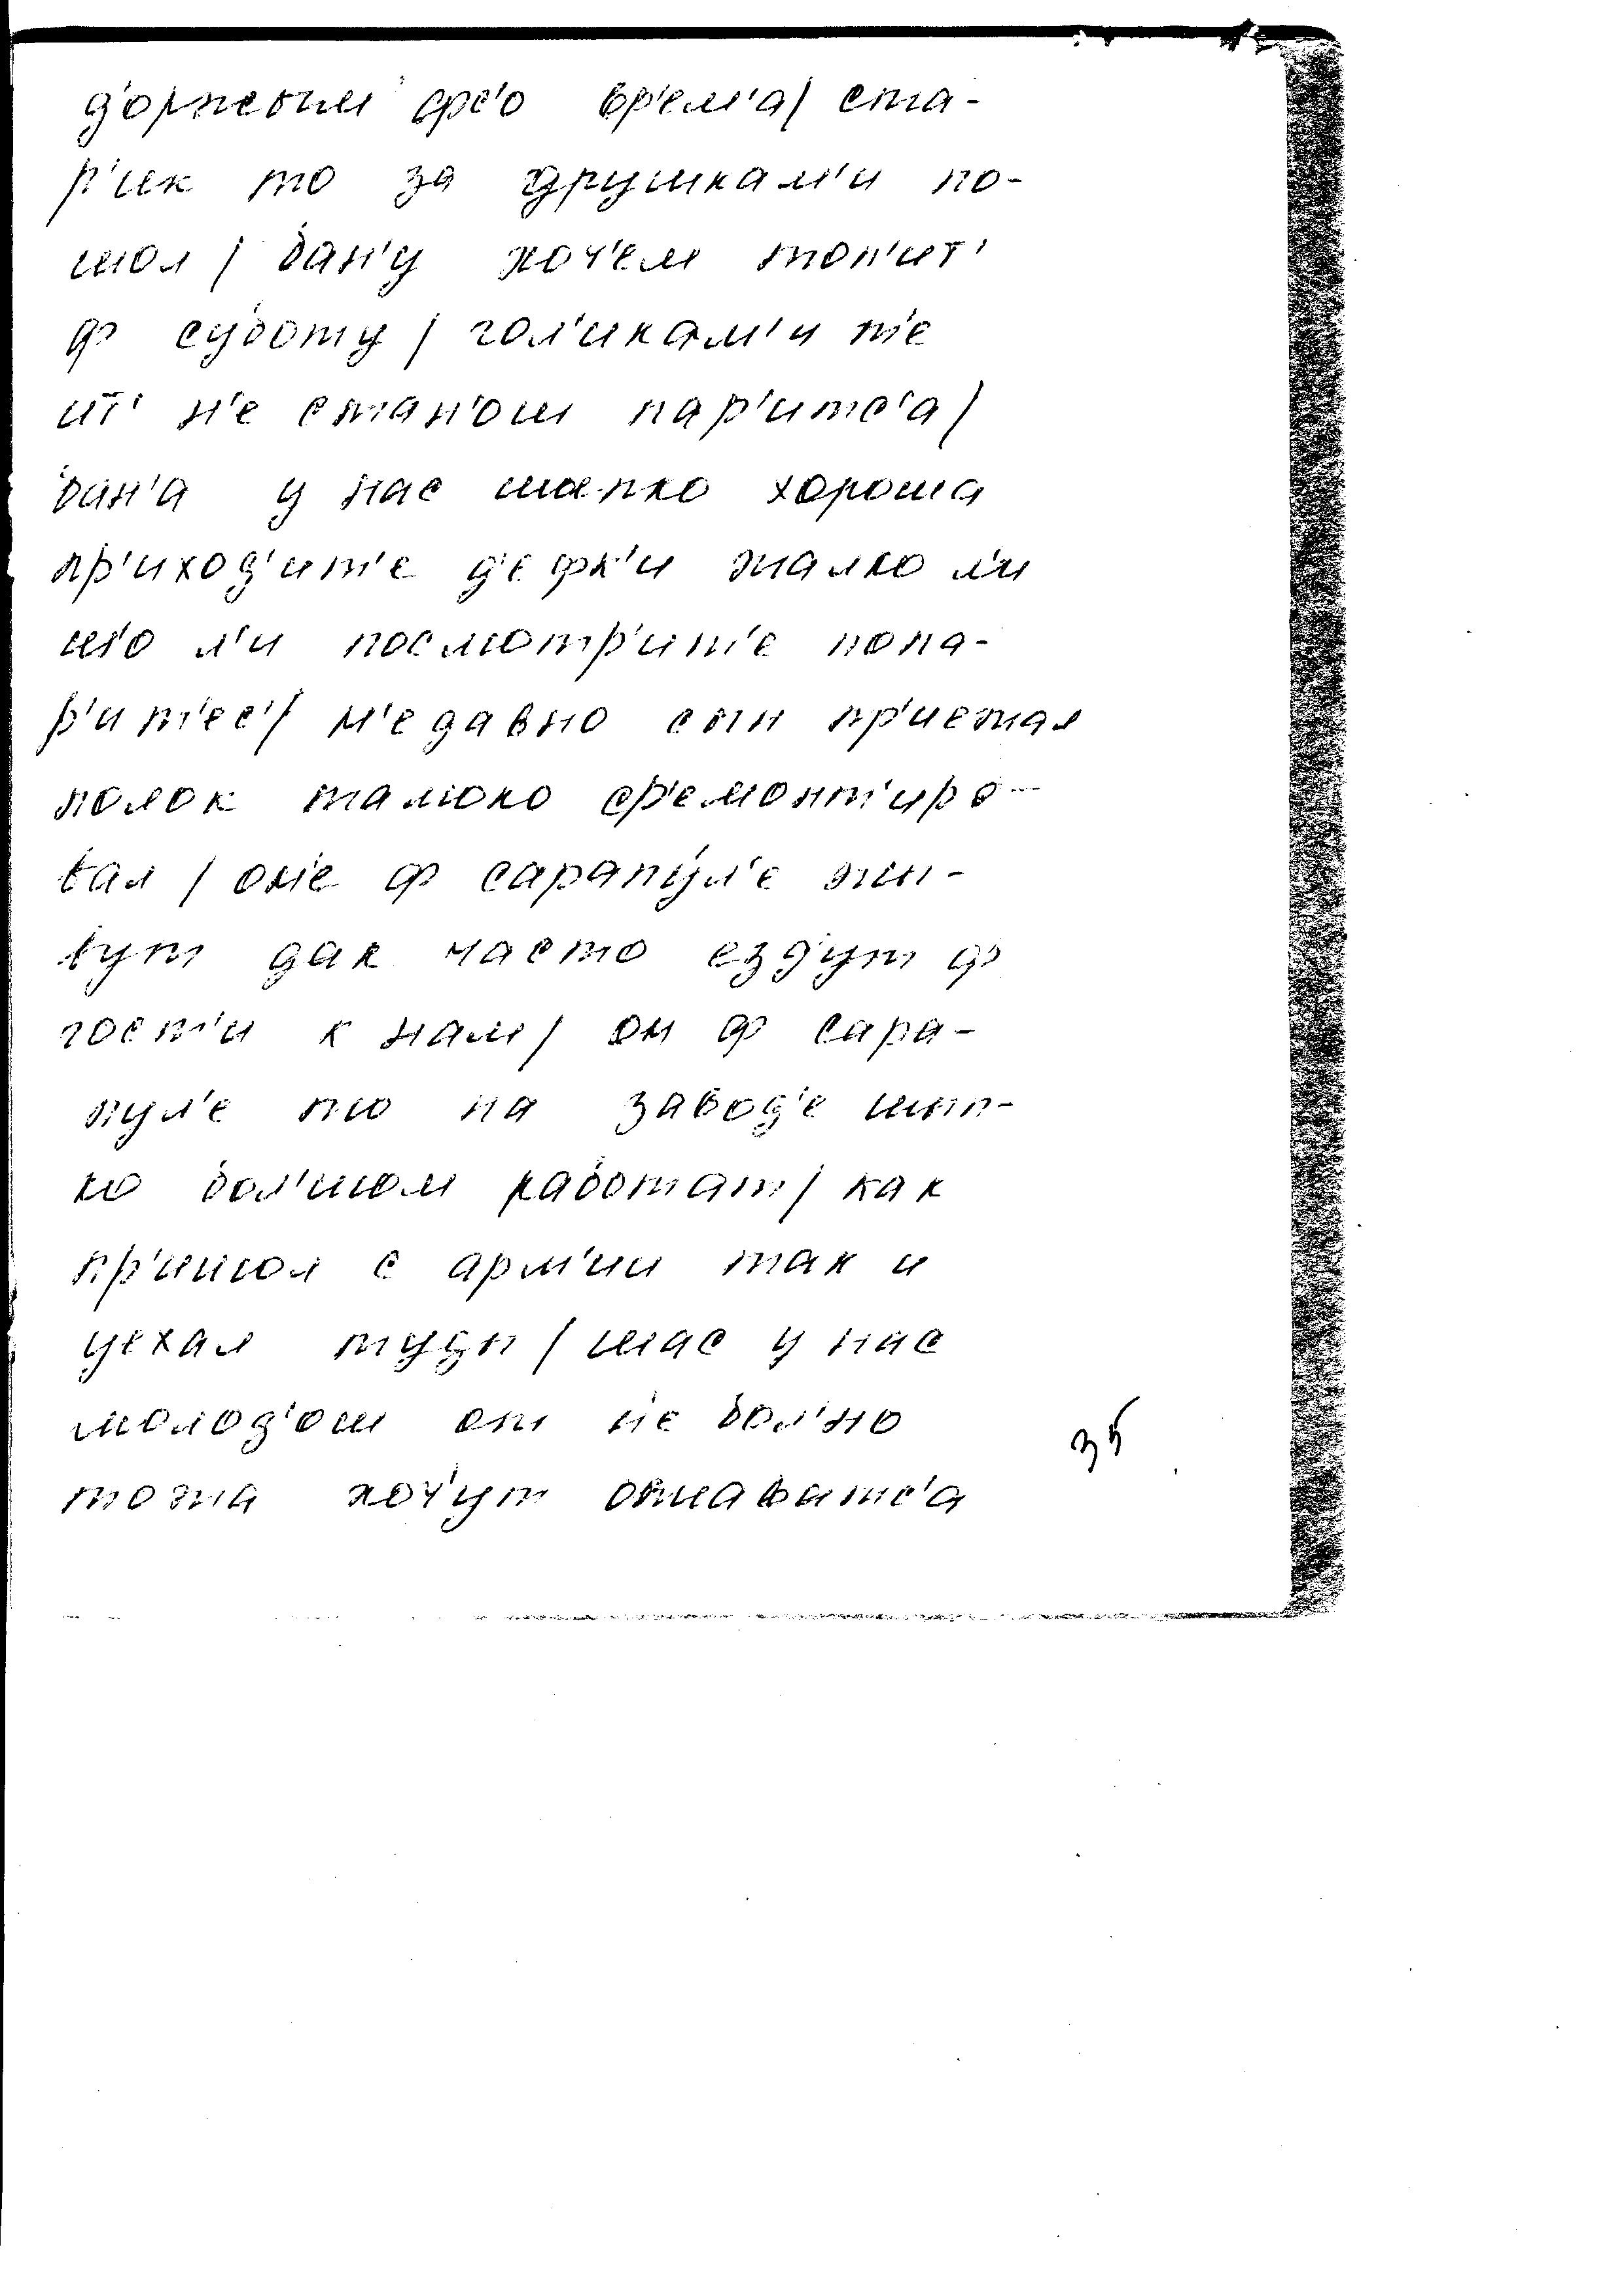 д'оржэвым фс'о вр'ем'а/ ста-
р'ик то за друшкам'и по-
шол / бан'у хоч'ем топ'ит'
ф суботу / гол'икам'и т'е
ит' н'е стан'ом пар'итс'а/
бан'а у нас шыпко хороша
пр'иход'ит'е д'ефк'и жалко л'и
шт'о л'и посмотр'ит'е попа-
р'ит'ес'/ н'едавно сын пр'иежал
полок талюко ср'емонт'иро-
вал / он'е ф сарапул'е жы-
вут дак часто езд'ут ф
гост'и к нам/ он ф сара-
пул'е то на завод'е шып-
ко бол'шом работат/ как
пр'ишол с арм'ии так и
уехал туды / шас у нас
молод'ош от н'е бол'но
тожа хоч'ут оставатс'а
35